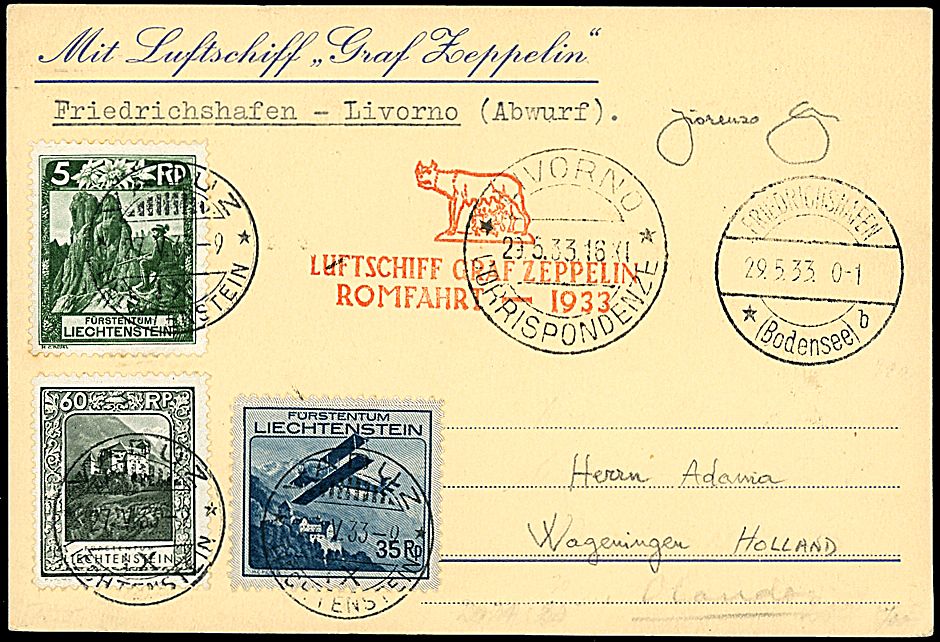 Mit Luftschiff „Graf Zeppelin“
Friedrichshafen - Livorno (Abwurf).
5 RP
FÜRSTENTUM
LIECHTENSTEIN
VADUZ
LIECHTENSTEIN
LUFTSCHIFF GRAF ZEPPELIN
ROMFAHRT — 1933
LIVORNO
29.5.33.16
CORRISPONDENZE
FRIEDRICHSHAFEN
29.5.33 0-1
(Bodensee) b
60 RP
LIECHTENSTEIN
VADUZ
LIECHTENSTEIN
FÜRSTENTUM
LIECHTENSTEIN
35 Rp
Herrn Adama
Wageningen HOLLAND